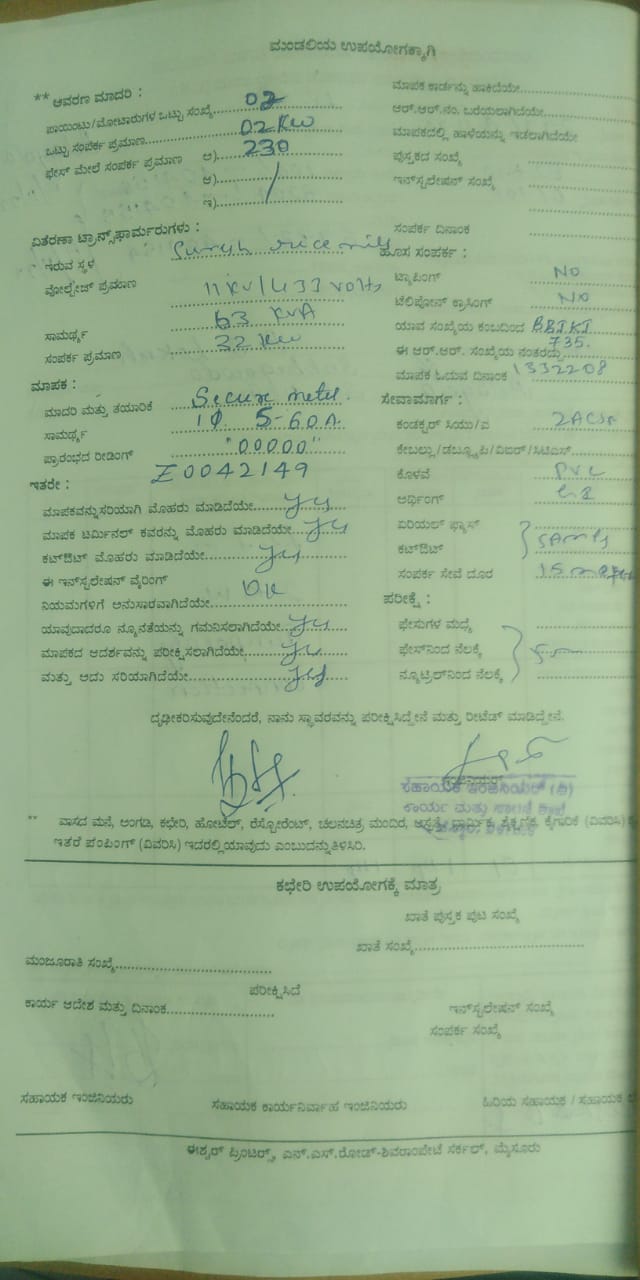 ಮಂಡಲಿಯ ಉಪಯೋಗಕ್ಕಾಗಿ
** ಆವರಣ ಮಾದರಿ :
ಪಾಯಿಂಟು/ಮೋಟಾರುಗಳ ಒಟ್ಟು ಸಂಖ್ಯೆ 02
ಒಟ್ಟು ಸಂಪರ್ಕ ಪ್ರಮಾಣ 02 KW
ಫೇಸ್ ಮೇಲೆ ಸಂಪರ್ಕ ಪ್ರಮಾಣ ಅ) 230
ಆ)
ಇ)
ವಿತರಣಾ ಟ್ರಾನ್ಸ್‌ಫಾರ್ಮರುಗಳು :
ಇರುವ ಸ್ಥಳ rice mill
ವೋಲ್ಟೇಜ್ ಪ್ರಮಾಣ 11 KV/433 volts
ಸಾಮರ್ಥ್ಯ 63 KVA
ಸಂಪರ್ಕ ಪ್ರಮಾಣ 32 KW
ಮಾಪಕ :
ಮಾದರಿ ಮತ್ತು ತಯಾರಿಕೆ Secure
ಸಾಮರ್ಥ್ಯ 1Φ 5-60A
ಪ್ರಾರಂಭದ ರೀಡಿಂಗ್ "00000"
ಇತರೇ : Z0042149
ಮಾಪಕವನ್ನು ಸರಿಯಾಗಿ ಮೊಹರು ಮಾಡಿದೆಯೇ yes
ಮಾಪಕ ಟರ್ಮಿನಲ್ ಕವರನ್ನು ಮೊಹರು ಮಾಡಿದೆಯೇ yes
ಕಟ್‌ಔಟ್ ಮೊಹರು ಮಾಡಿದೆಯೇ yes
ಈ ಇನ್‌ಸ್ಟಲೇಷನ್ ವೈರಿಂಗ್
ನಿಯಮಗಳಿಗೆ ಅನುಸಾರವಾಗಿದೆಯೇ OK
ಯಾವುದಾದರೂ ನ್ಯೂನತೆಯನ್ನು ಗಮನಿಸಲಾಗಿದೆಯೇ yes
ಮಾಪಕದ ಆದರ್ಶವನ್ನು ಪರೀಕ್ಷಿಸಲಾಗಿದೆಯೇ yes
ಮತ್ತು ಅದು ಸರಿಯಾಗಿದೆಯೇ yes
ಮಾಪಕ ಕಾರ್ಡನ್ನು ಹಾಕಿದೆಯೇ
ಆರ್.ಆರ್.ನಂ. ಬರೆಯಲಾಗಿದೆಯೇ
ಮಾಪಕದಲ್ಲಿ ಹಾಳೆಯನ್ನು ಇಡಲಾಗಿದೆಯೇ
ಪುಸ್ತಕದ ಸಂಖ್ಯೆ
ಇನ್‌ಸ್ಟಲೇಷನ್ ಸಂಖ್ಯೆ
ಸಂಪರ್ಕ ದಿನಾಂಕ
ಹೊಸ ಸಂಪರ್ಕ :
ಟ್ಯಾಪಿಂಗ್ NO
ಟೆಲಿಫೋನ್ ಕ್ರಾಸಿಂಗ್ NO
ಯಾವ ಸಂಖ್ಯೆಯ ಕಂಬದಿಂದ
ಈ ಆರ್.ಆರ್. ಸಂಖ್ಯೆಯ ನಂತರದ್ದು 735
ಮಾಪಕ ಓದುವ ದಿನಾಂಕ 1332208
ಸೇವಾಮಾರ್ಗ :
ಕಂಡಕ್ಟರ್ ಸಿಯು/ಎ
ಕೇಬಲ್ಲು/ಡಬ್ಲ್ಯೂಪಿ/ವಿಐಆರ್/ಸಿಟಿಎಸ್
ಕೊಳವೆ PVC
ಅರ್ಥಿಂಗ್ GI
ಏರಿಯಲ್ ಫ್ಯೂಸ್
ಕಟ್‌ಔಟ್ 5Amps
ಸಂಪರ್ಕ ಸೇವೆ ದೂರ
ಪರೀಕ್ಷೆ :
ಫೇಸುಗಳ ಮಧ್ಯೆ
ಫೇಸ್‌ನಿಂದ ನೆಲಕ್ಕೆ
ನ್ಯೂಟ್ರಲ್‌ನಿಂದ ನೆಲಕ್ಕೆ
ದೃಢೀಕರಿಸುವುದೇನೆಂದರೆ, ನಾನು ಸ್ಥಾವರವನ್ನು ಪರೀಕ್ಷಿಸಿದ್ದೇನೆ ಮತ್ತು ರೀಟೆಡ್ ಮಾಡಿದ್ದೇನೆ.
ಸಹಾಯಕ ಇಂಜಿನಿಯರ್ (ವಿ)
ಕಾರ್ಯ ಮತ್ತು ಪಾಲನೆ ಶಾಖೆ
** ವಾಸದ ಮನೆ, ಅಂಗಡಿ, ಕಛೇರಿ, ಹೋಟೆಲ್, ರೆಸ್ಟೋರೆಂಟ್, ಚಲನಚಿತ್ರ ಮಂದಿರ, ಆಸ್ಪತ್ರೆ, ಧಾರ್ಮಿಕ, ಶೈಕ್ಷಣಿಕ, ಕೈಗಾರಿಕೆ (ವಿವರಿಸಿ)
ಇತರೆ ಪಂಪಿಂಗ್ (ವಿವರಿಸಿ) ಇದರಲ್ಲಿ ಯಾವುದು ಎಂಬುದನ್ನು ತಿಳಿಸಿರಿ.
ಕಛೇರಿ ಉಪಯೋಗಕ್ಕೆ ಮಾತ್ರ
ಖಾತೆ ಪುಸ್ತಕ ಪುಟ ಸಂಖ್ಯೆ
ಖಾತೆ ಸಂಖ್ಯೆ
ಮಂಜೂರಾತಿ ಸಂಖ್ಯೆ
ಪರೀಕ್ಷಿಸಿದೆ
ಕಾರ್ಯ ಆದೇಶ ಮತ್ತು ದಿನಾಂಕ
ಇನ್‌ಸ್ಟಲೇಷನ್ ಸಂಖ್ಯೆ
ಸಂಪರ್ಕ ಸಂಖ್ಯೆ
ಸಹಾಯಕ ಇಂಜಿನಿಯರು ಸಹಾಯಕ ಕಾರ್ಯನಿರ್ವಾಹ ಇಂಜಿನಿಯರು ಹಿರಿಯ ಸಹಾಯಕ / ಸಹಾಯಕ
ಈಶ್ವರ್ ಪ್ರಿಂಟರ್ಸ್, ಎನ್.ಎಸ್.ರೋಡ್-ಶಿವರಾಂಪೇಟೆ ಸರ್ಕಲ್, ಮೈಸೂರು